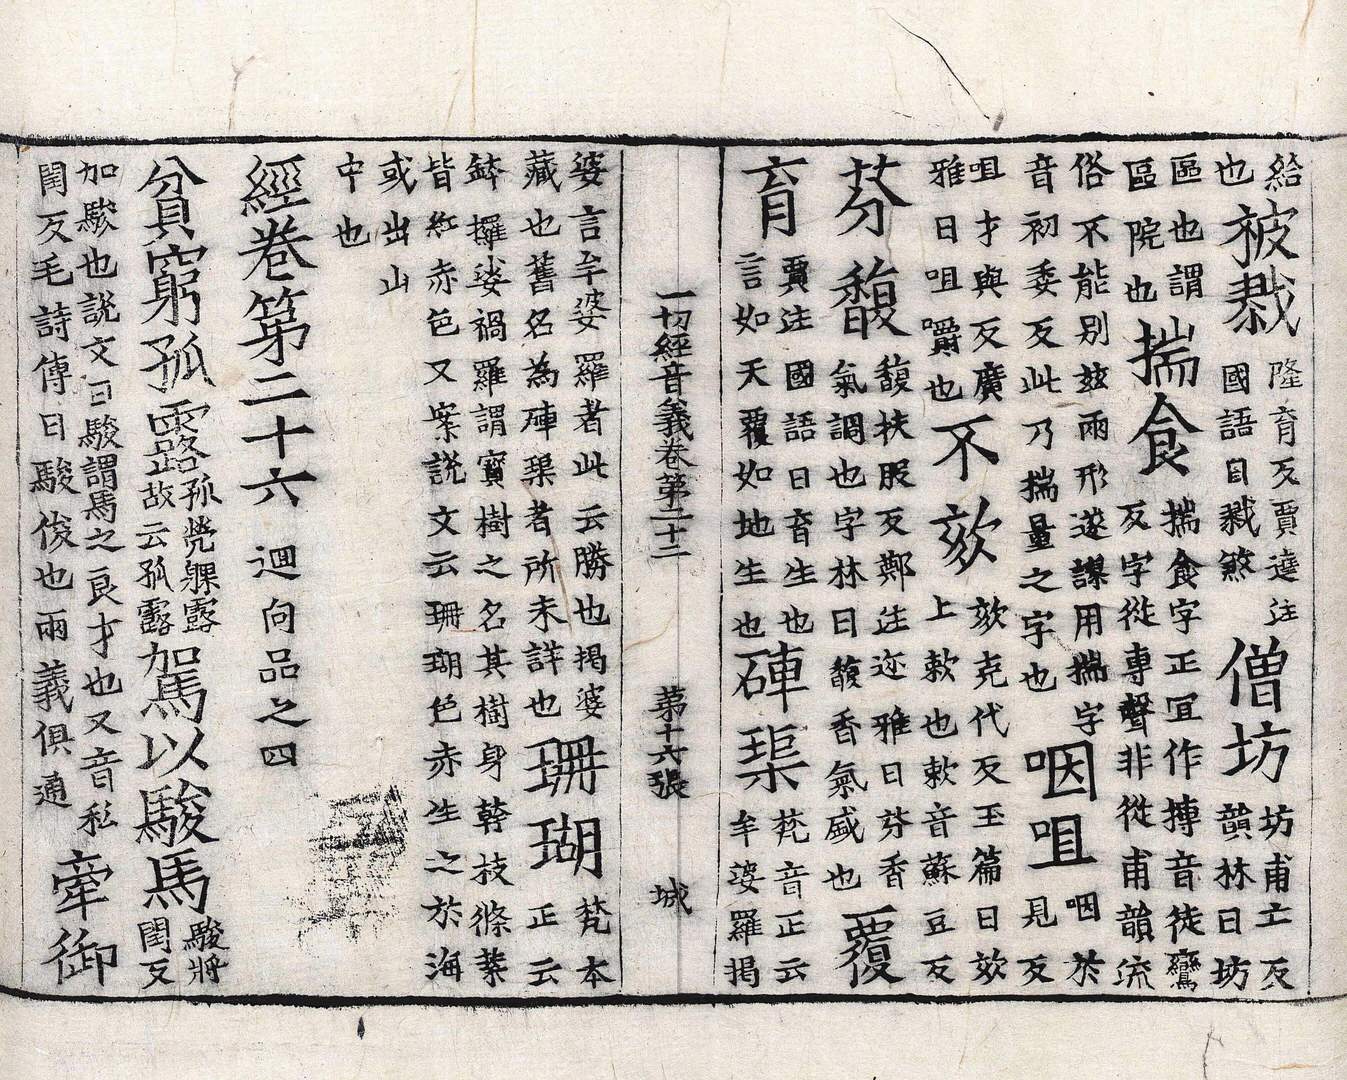 給也被戮隆育反賈逵注國語曰戮煞僧坊坊甫亡反韻林曰坊
區也謂區院也揣食揣食字正冝作摶音徒鸞反字從專聲非從甫韻流
俗不能別玆兩形遂謀用揣字音初委反此乃揣量之字也咽咀咽於見反
咀才與反廣雅曰咀嚼也不欬欬克代反玉篇曰欬上欶也欶音蘇豆反
芬馥馥扶服反鄭注迩雅曰芬香氣調也字林曰馥香氣盛也覆
育賈注國語曰育生也言如天覆如地生也硨璖梵音正云牟婆羅揭
一切經音義卷第二十二 第十六張 城
婆言牟婆羅者此云勝也揭婆藏也舊名為硨璖者所未詳也珊瑚梵本正云
鉢攞娑禍羅謂寶樹之名其樹身幹枝條葉皆紅赤色又案說文云珊瑚色赤生之於海
或出山中也
經卷第二十六 迴向品之四
貧窮孤露孤㷀躶露故云孤露駕以駿馬駿將閏反
加駿也說文曰駿謂馬之良才也又音私閏反毛詩傳曰駿俊也兩義俱通牽御